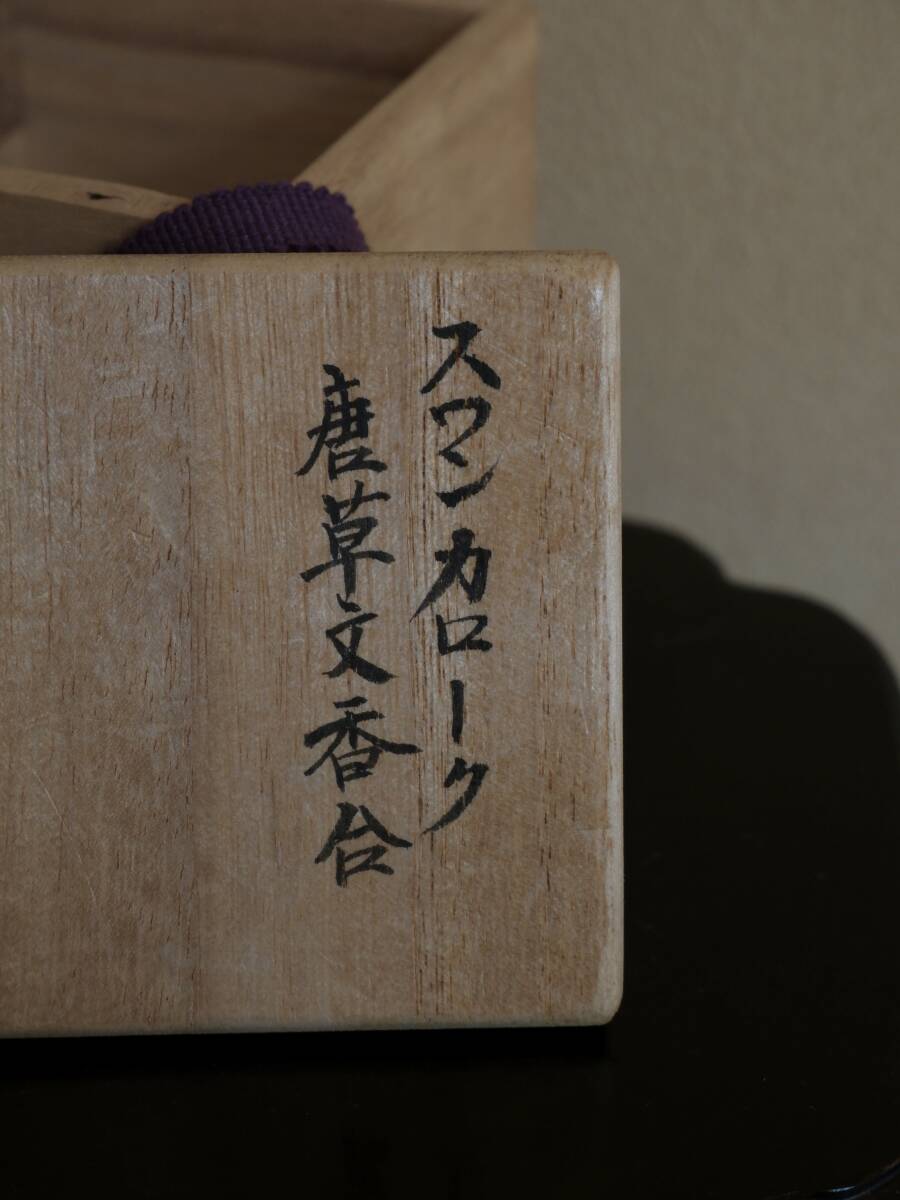 スワンカローク
唐草文香合